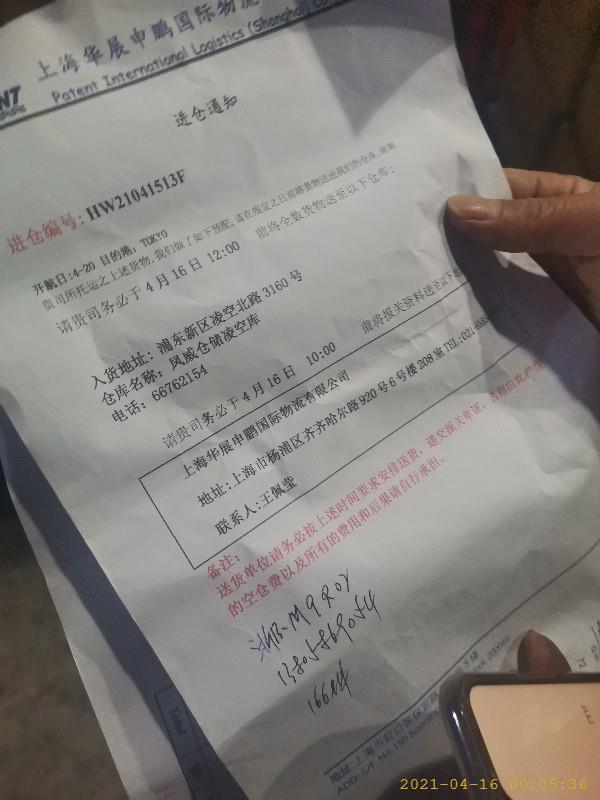 NT 上海华展申鹏国际物流
Patent International Logistics (Shanghai) Co
进仓通知
进仓编号: HW21041513F
开航日:4-20 目的港: TOKYO
贵司所托运之上述货物,我们做了如下预配,请在规定之日前将货物送至我们的仓库,
请贵司务必于 4 月 16 日 12:00 前将全数货物送至以下仓库:
入货地址: 浦东新区凌空北路 3160 号
仓库名称: 凤威仓储凌空库
电话: 66762154
请贵司务必于 4 月 16 日 10:00 前将报关资料送至以下
上海华展申鹏国际物流有限公司
地址:上海市杨浦区齐齐哈尔路 920 号 6 号楼 208 室 TEL:021-
联系人:王佩莹
备注:
送货单位请务必按上述时间要求安排送货,递交报关单证,否则由此产生
的空仓费以及所有的费用和后果请自行承担。
浙B-M9R02
13805869054
166件
Total
地址:上海市虹口区
ADD:5/F, No.150
72
2021-04-16 00:05:36